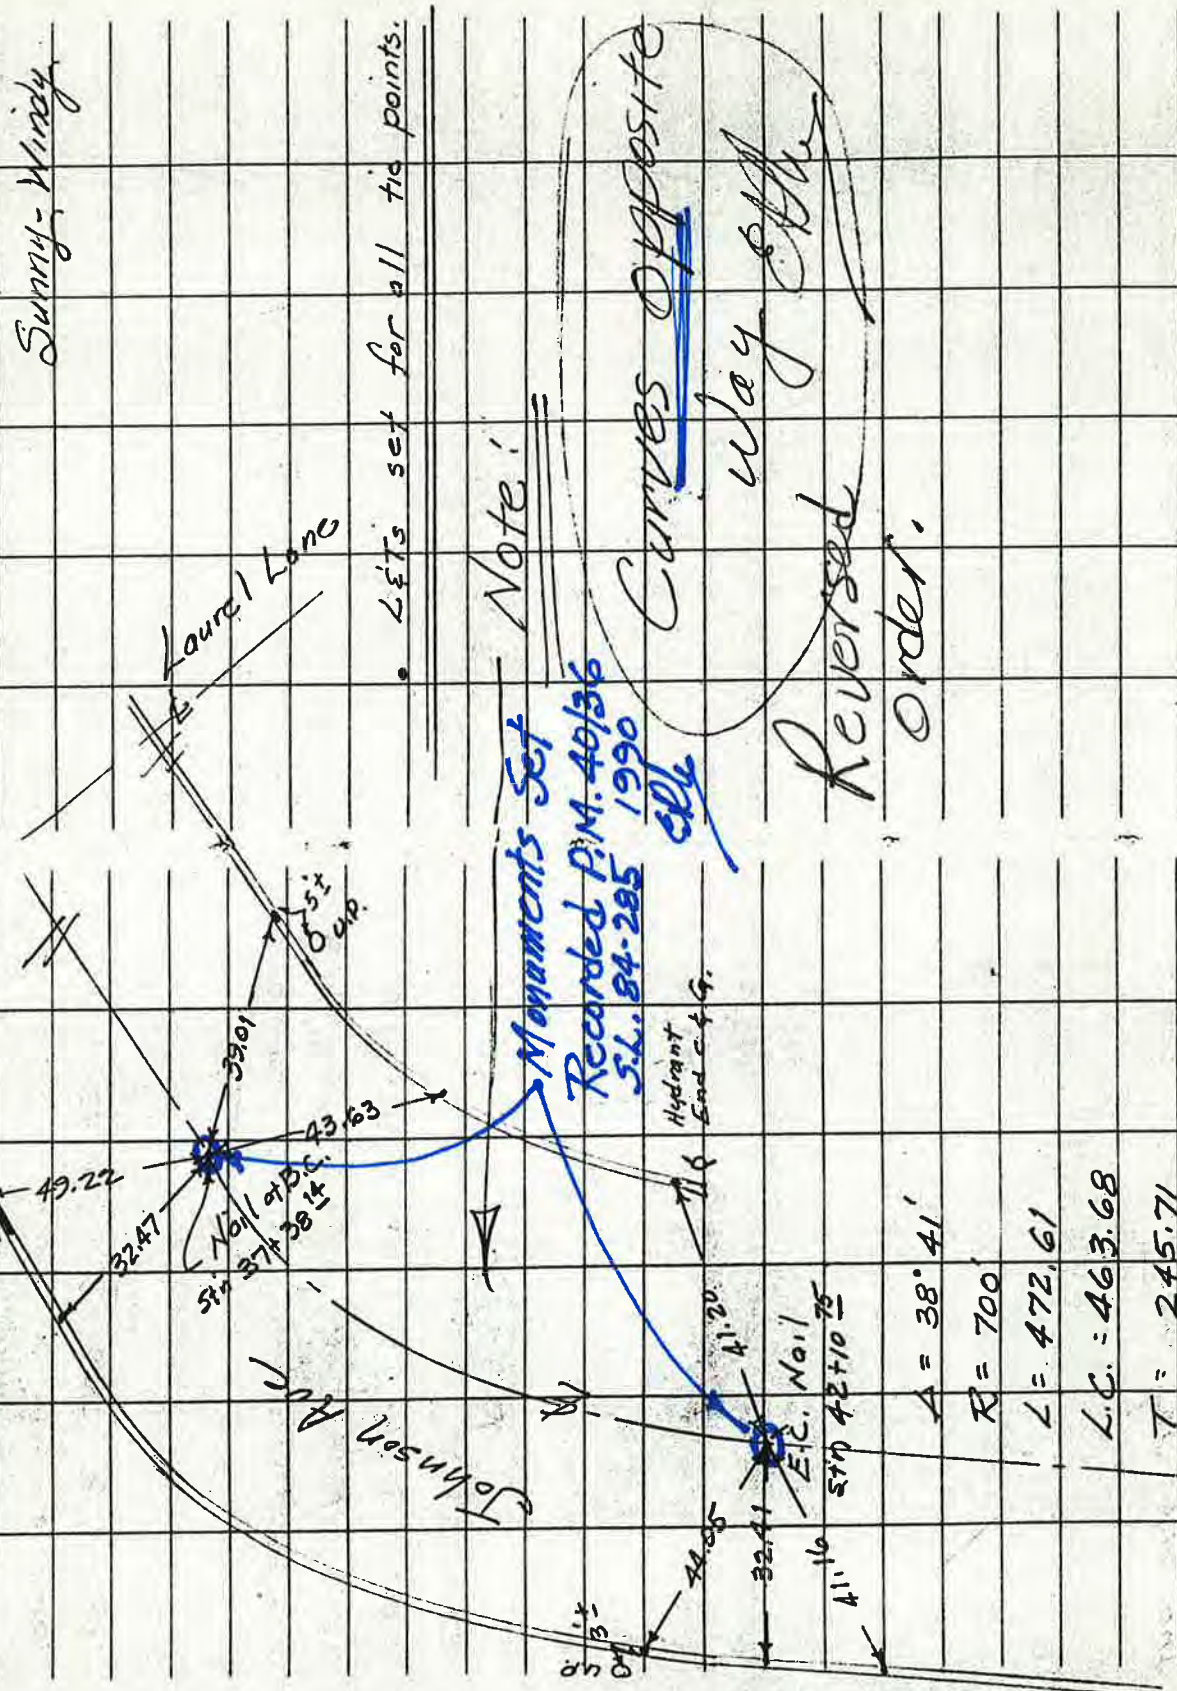 Sunny-Windy
Laurel Lane
L&Ts set for all tie points.
Note:
Curves Opposite
Way
Reversed
Order.
Monuments Set
Recorded P.M. 40/36
S.L. 84-285 1990
5'±
U.P.
39.01
43.63
49.22
32.47
Nail at B.C.
Stn 37+38 14
Johnson Av
Hydrant
End c & G.
41.20
E.C. Nail
Stn 42+10 75
44.05
32.41
41.16
3'±
Δ = 38° 41'
R = 700'
L = 472.61
L.C. = 463.68
T = 245.71